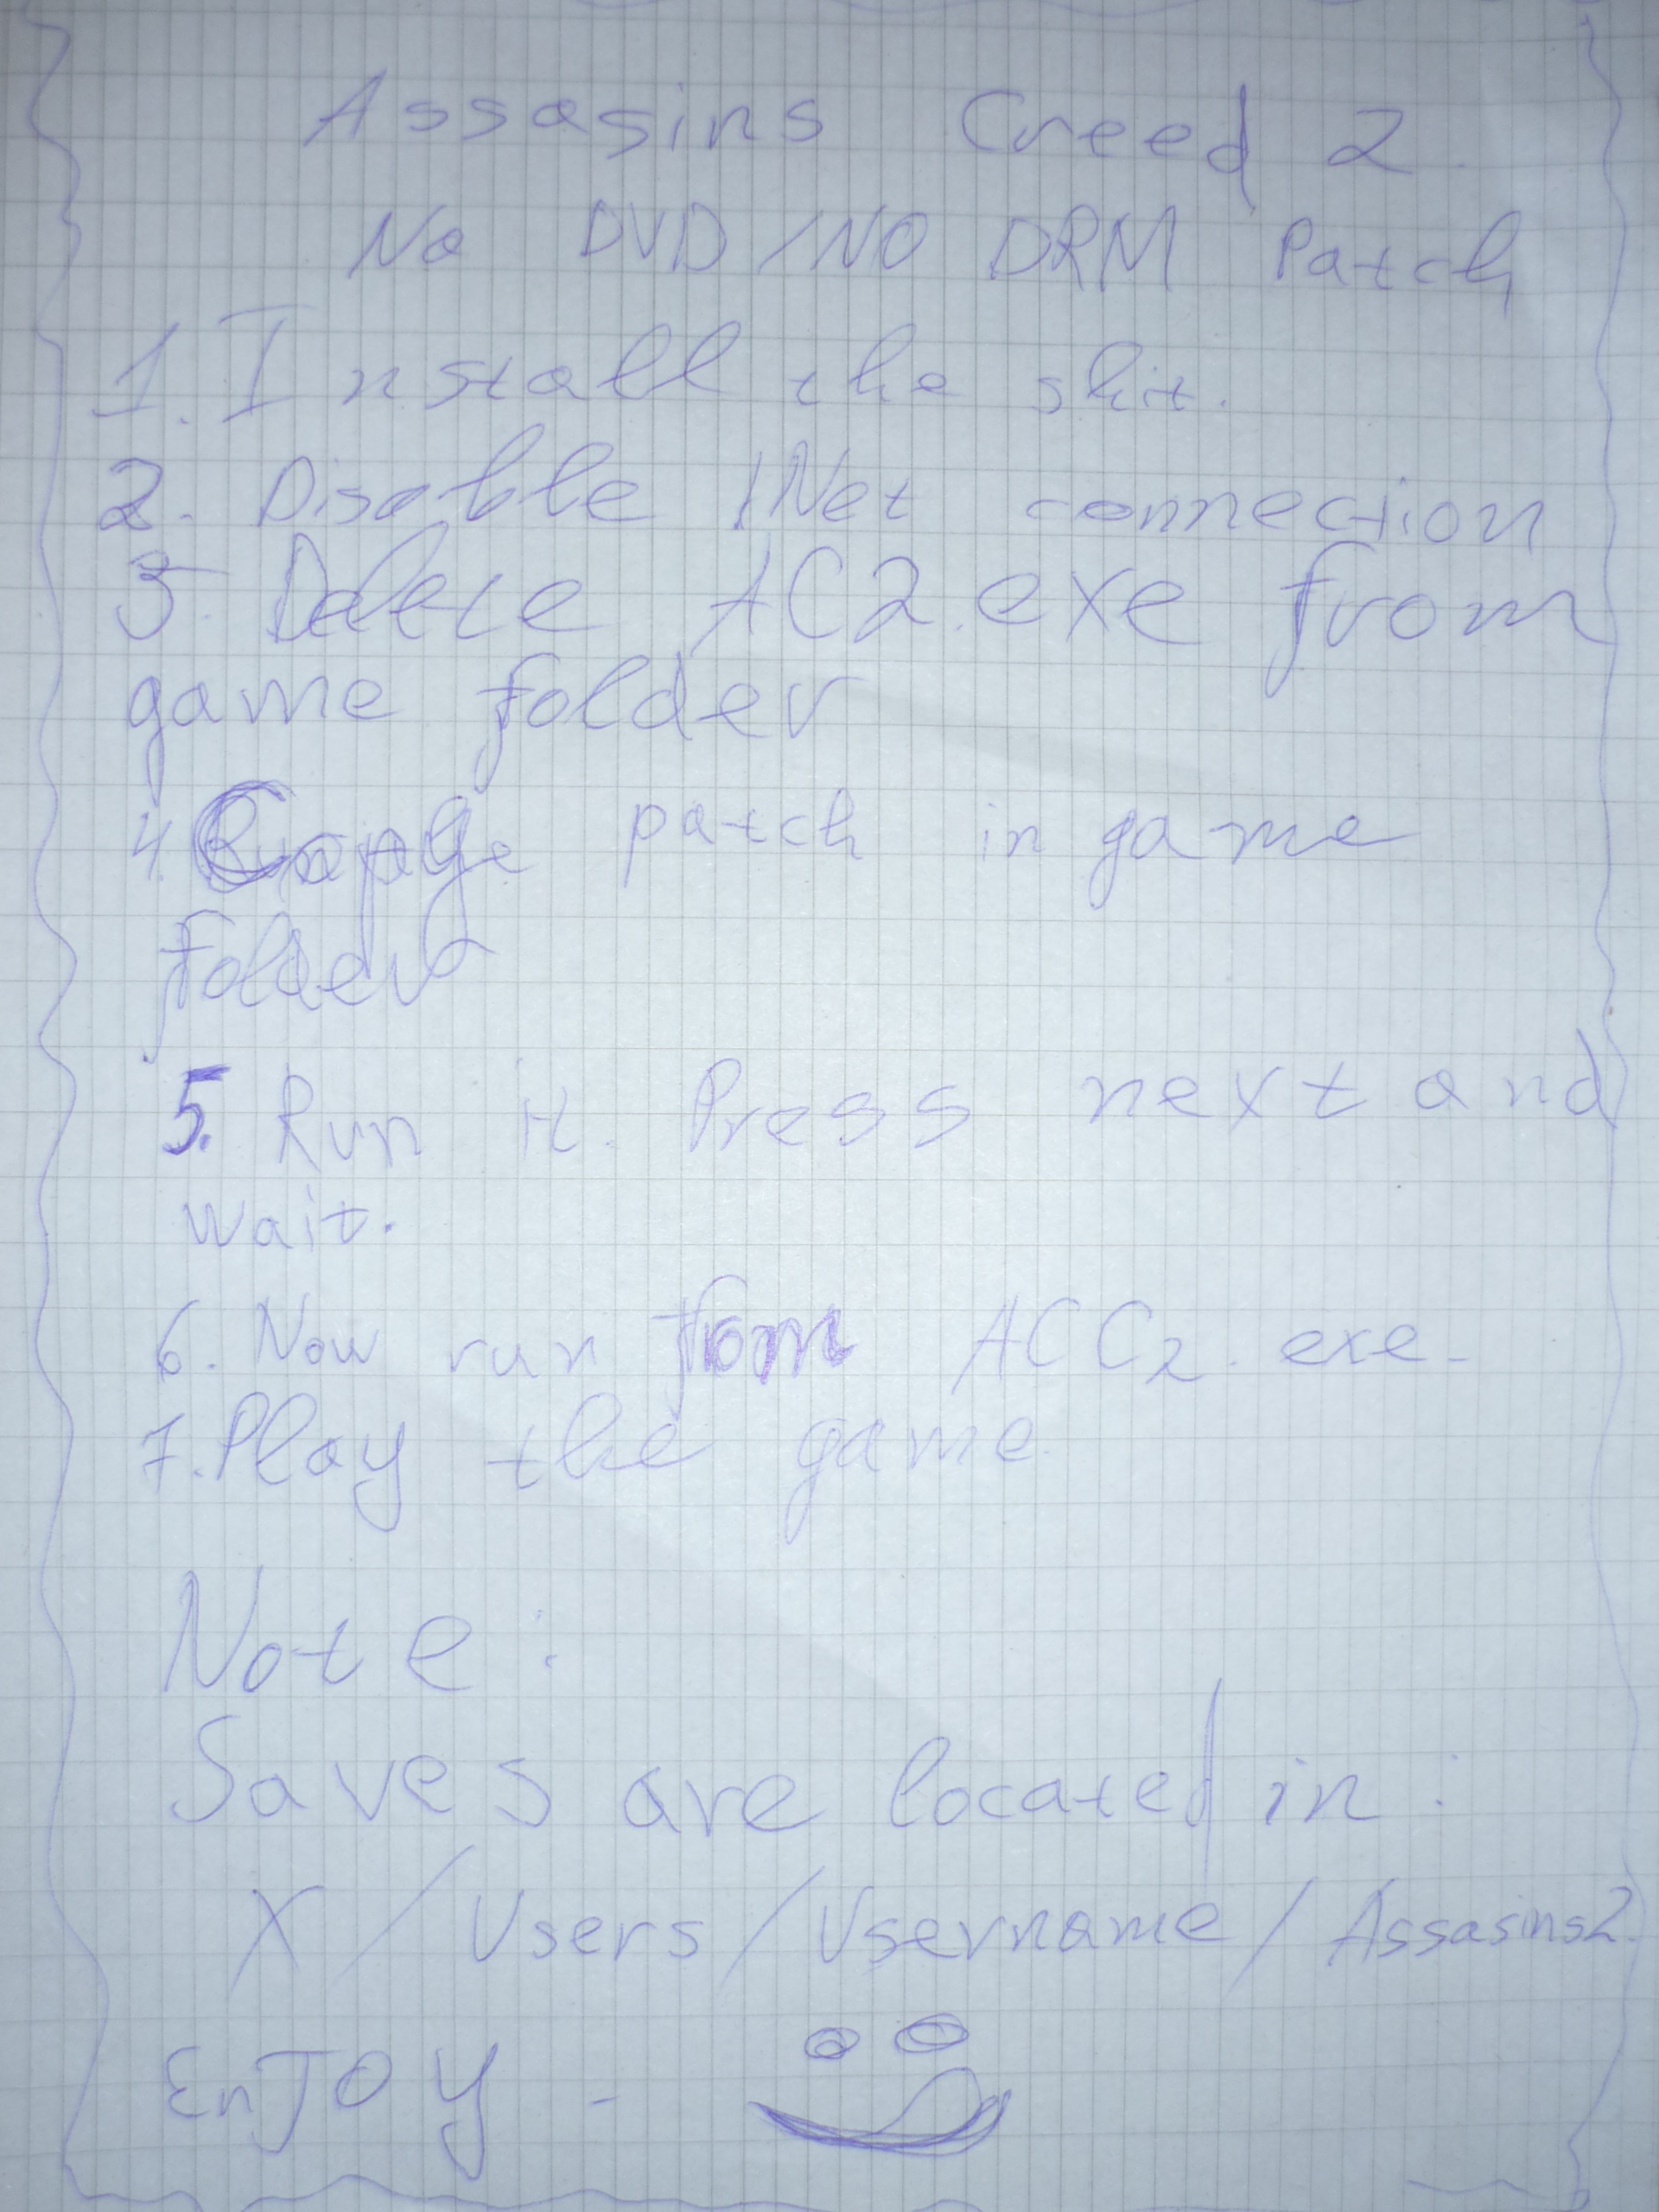 Assasins Creed 2.
No DVD/NO DRM Patch
1. Install the shit.
2. Disable INet connection
3. Delete AC2.exe from
game folder
4. patch in game
folder
5. Run it. Press next and
wait.
6. Now run from ACC2.exe.
7. Play the game
Note:
Saves are located in:
X/Users/Username/Assasins2.
EnJOy -